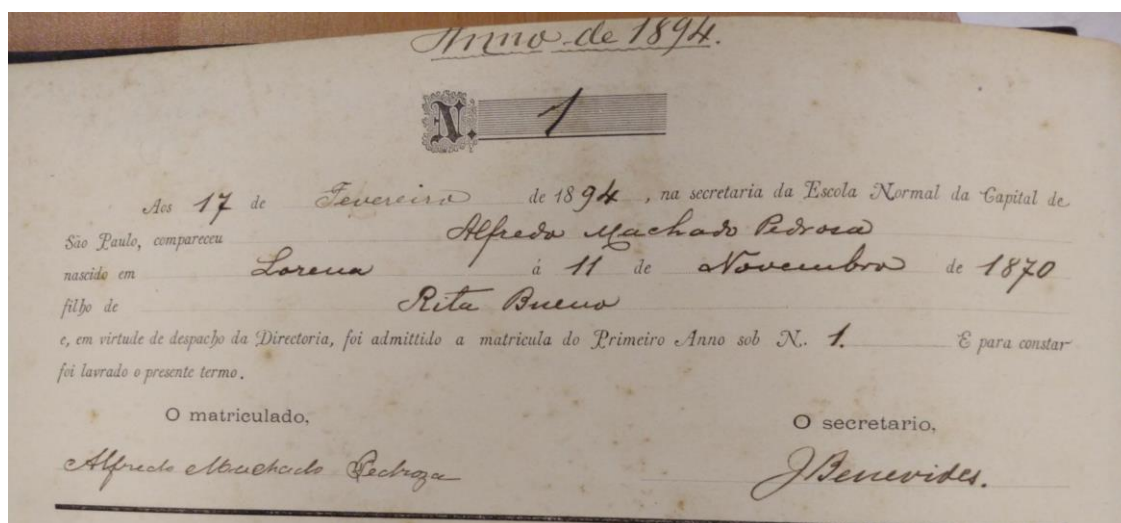 Anno de 1894.
N. 1
Aos 17 de Fevereiro de 1894, na secretaria da Escola Normal da Capital de
São Paulo, compareceu Alfredo Machado Pedrosa
nascido em Lorena á 11 de Novembro de 1870
filho de Rita Bueno
e, em virtude de despacho da Directoria, foi admittido a matricula do Primeiro Anno sob N. 1. E para constar
foi lavrado o presente termo.
O matriculado, O secretario,
Alfredo Machado Pedroza JBenevides.